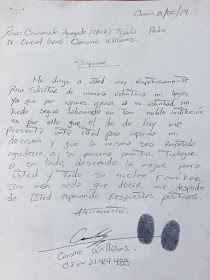 Para: Comisionado Agregado (CPNB) Tejada Pedro
De Oficial (CPNB) Camano Williams
Me dirijo a usted muy Respetuosamente
Para solicitar de manera voluntaria mi baja,
Ya que por razones ajenas a mi voluntad, no
Puedo seguir laborando en tan noble institución
es por ello que el día de hoy me
Presento ante usted para informar mi
decisión y que la misma sea Respetada
agradecido al so permitirme Trabajar
a su lado, deseando lo mejor para
usted y Todo su nucleo Familiar.
Sin mas nada que decir, me despido
de usted esperando Respuestas positivas.
Atentamente:
Camano Williams.
C.I.V-21.424.488